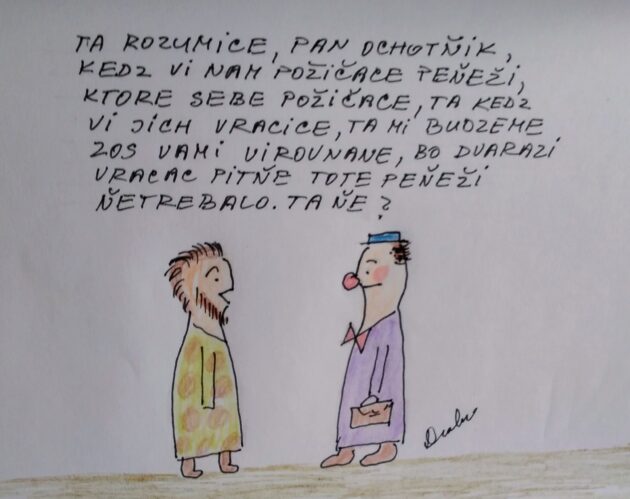 TA ROZUMICE, PAN OCHOTŇIK,
KEDZ VI NAM POŽIČACE PEŇEŽI,
KTORE SEBE POŽIČACE, TA KEDZ
VI JICH VRACICE, TA MI BUDZEME
ZOS VAMI VIROVNANE, BO DVARAZI
VRACAC PITŇE TOTE PEŇEŽI
ŇETREBALO. TA ŇE?